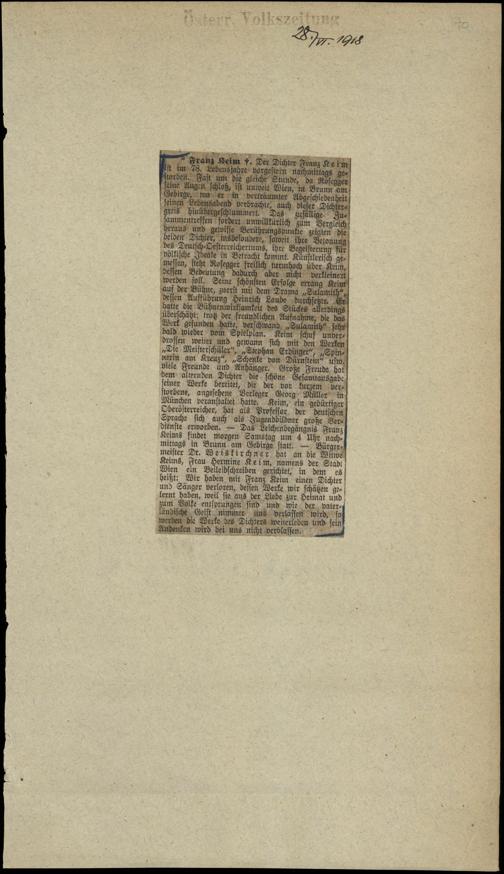 Österr. Volkszeitung
70
28./VI. 1918
* Franz Keim †. Der Dichter Franz Keim
ist im 78. Lebensjahre vorgestern nachmittags ge-
storben. Fast um die gleiche Stunde, da Rosegger
seine Augen schloß, ist unweit Wien, in Brunn am
Gebirge, wo er in verträumter Abgeschiedenheit
seinen Lebensabend verbrachte, auch dieser Dichter-
greis hinübergeschlummert. Das zufällige Zu-
sammentreffen fordert unwillkürlich zum Vergleich
heraus und gewisse Berührungspunkte zeigten die
beiden Dichter, insbesondere, soweit ihre Betonung
des Deutsch-Oesterreichertums, ihre Begeisterung für
völkische Ideale in Betracht kommt. Künstlerisch ge-
messen, steht Rosegger freilich turmhoch über Keim,
dessen Bedeutung dadurch aber nicht verkleinert
werden soll. Seine schönsten Erfolge errang Keim
auf der Bühne, zuerst mit dem Drama „Sulamith“,
dessen Aufführung Heinrich Laube durchsetzte. Er
hatte die Bühnenwirksamkeit des Stückes allerdings
überschätzt; trotz der freundlichen Aufnahme, die das
Werk gefunden hatte, verschwand „Sulamith“ sehr
bald wieder vom Spielplan. Keim schuf unver-
drossen weiter und gewann sich mit den Werken
„Die Meisterschüler“, „Stephan Erdinger“, „Spin-
nerin am Kreuz“, „Schenke von Dürnstein“ usw.
viele Freunde und Anhänger. Große Freude hat
dem alternden Dichter die schöne Gesamtausgabe
seiner Werke bereitet, die der vor kurzem ver-
storbene, angesehene Verleger Georg Müller in
München veranstaltet hatte. Keim, ein gebürtiger
Oberösterreicher, hat als Professor der deutschen
Sprache sich auch als Jugendbildner große Ver-
dienste erworben. — Das Leichenbegängnis Franz
Keims findet morgen Samstag um 4 Uhr nach-
mittags in Brunn am Gebirge statt. — Bürger-
meister Dr. Weiskirchner hat an die Witwe
Keims, Frau Hermine Keim, namens der Stadt
Wien ein Beileidschreiben gerichtet, in dem es
heißt: Wir haben mit Franz Keim einen Dichter
und Sänger verloren, dessen Werke wir schätzen ge-
lernt haben, weil sie aus der Liebe zur Heimat und
zum Volke entsprungen sind und wie der vater-
ländische Geist nimmer uns verlassen wird, so
werden die Werke des Dichters weiterleben und sein
Andenken wird bei uns nicht verblassen.